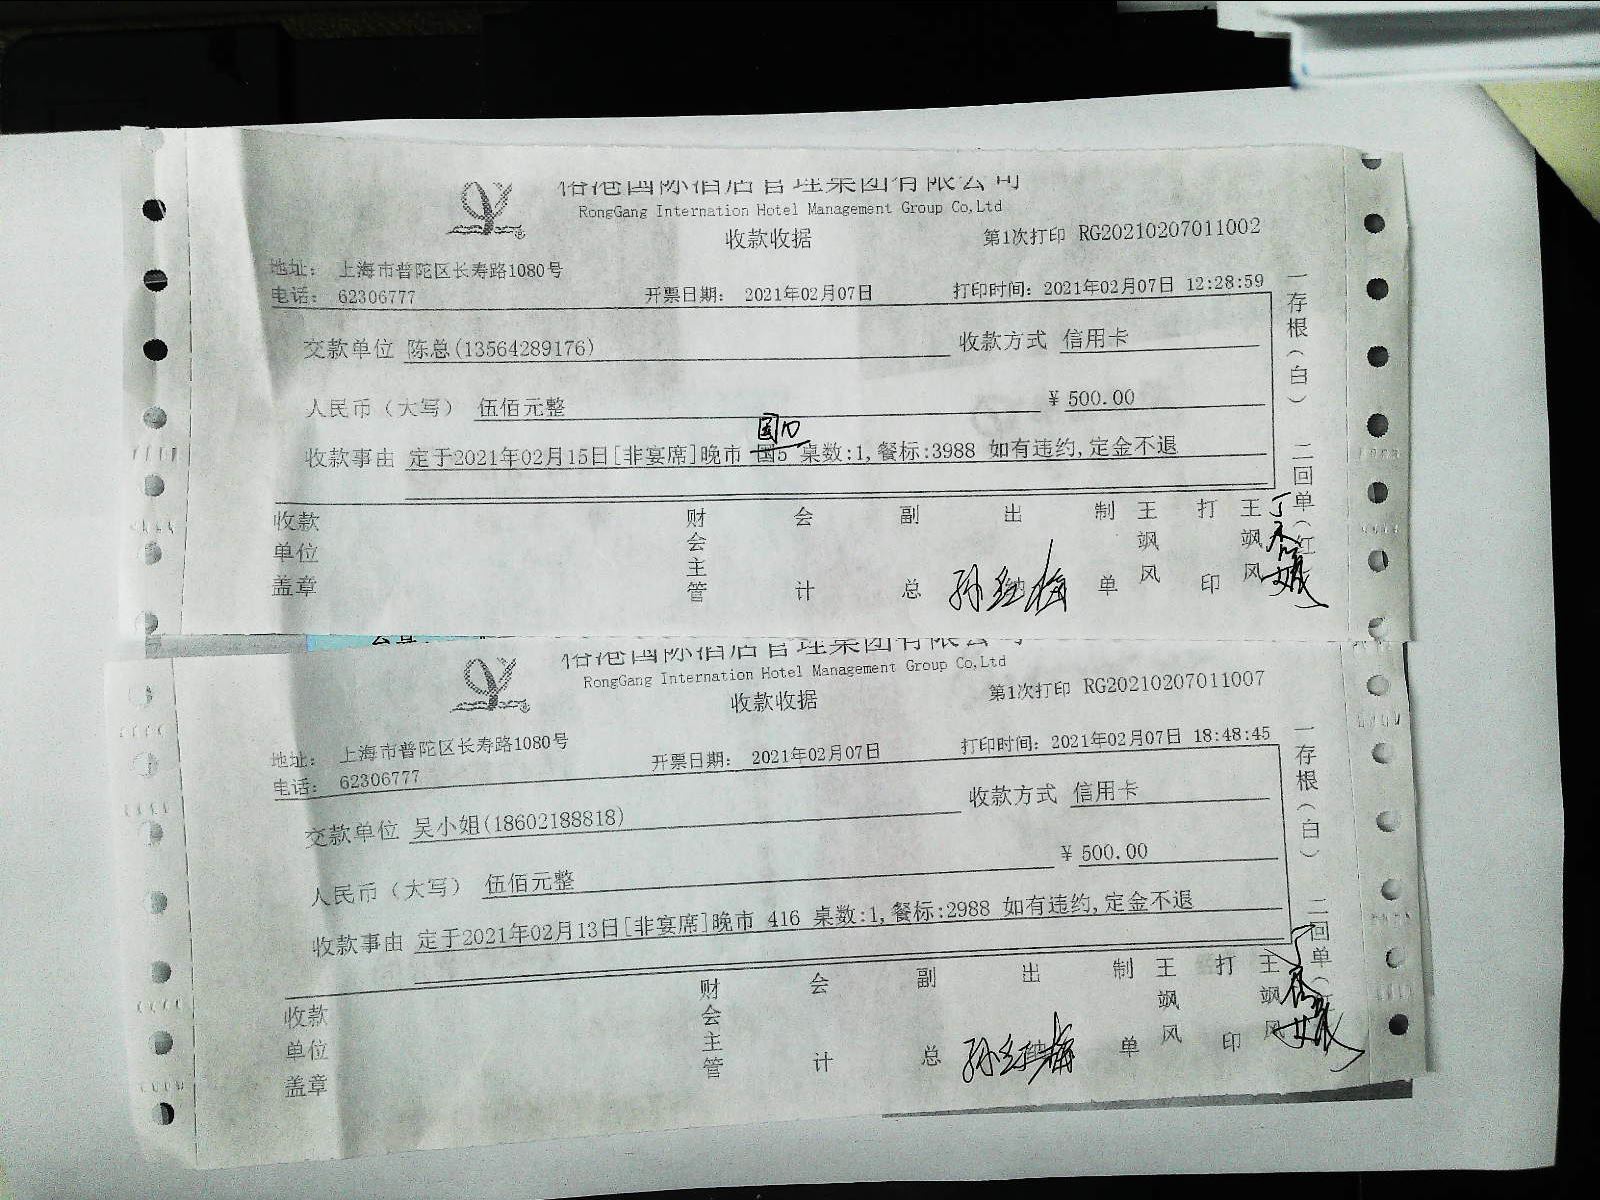 国际酒店管理集团有限公司
RongGang Internation Hotel Management Group Co,Ltd
收款收据
第1次打印 RG20210207011002
地址： 上海市普陀区长寿路1080号
电话： 62306777
开票日期： 2021年02月07日
打印时间：2021年02月07日 12:28:59
交款单位 陈总(13564289176)
收款方式 信用卡
人民币（大写） 伍佰元整
¥ 500.00
收款事由 定于2021年02月15日[非宴席]晚市 国5 桌数:1,餐标:3988 如有违约,定金不退
收款单位盖章
财会主管
会计
副总
出纳
孙红梅
制单
王飒风
打印
王飒风
一存根（白） 二回单（红
国际酒店管理集团有限公司
RongGang Internation Hotel Management Group Co,Ltd
收款收据
第1次打印 RG20210207011007
地址： 上海市普陀区长寿路1080号
电话： 62306777
开票日期： 2021年02月07日
打印时间：2021年02月07日 18:48:45
交款单位 吴小姐(18602188818)
收款方式 信用卡
人民币（大写） 伍佰元整
¥ 500.00
收款事由 定于2021年02月13日[非宴席]晚市 416 桌数:1,餐标:2988 如有违约,定金不退
收款单位盖章
财会主管
会计
副总
出纳
孙红梅
制单
王飒风
打印
王飒风
一存根（白） 二回单（